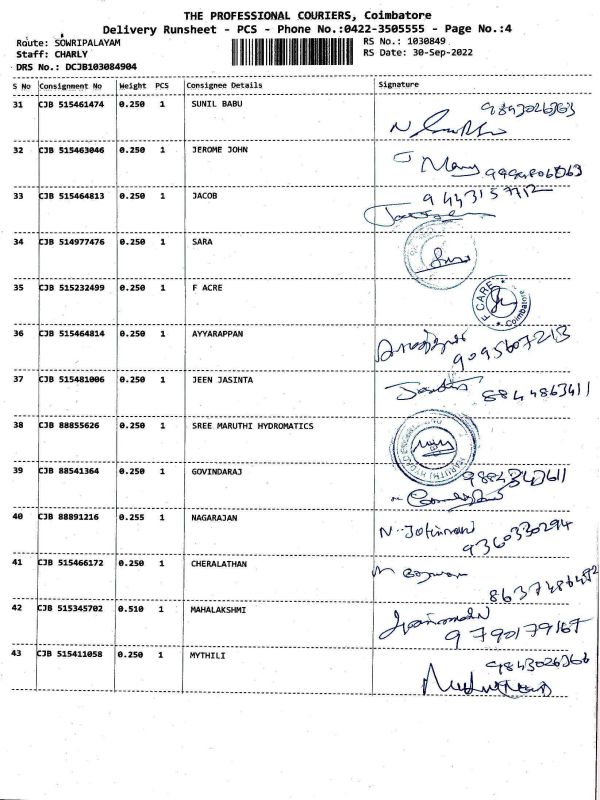 THE PROFESSIONAL COURIERS, Coimbatore
Delivery Runsheet - PCS - Phone No.:0422-3505555 - Page No.:4
Route: SOWRIPALAYAM
RS No.: 1030849
Staff: CHARLY
RS Date: 30-Sep-2022
DRS No.: DCJB103084904
S No Consignment No Weight PCS Consignee Details Signature
31 CJB 515461474 0.250 1 SUNIL BABU
32 CJB 515463046 0.250 1 JEROME JOHN
33 CJB 515464813 0.250 1 JACOB 9443157712
34 CJB 514977476 0.250 1 SARA
35 CJB 515232499 0.250 1 F ACRE
F CARE
Coimbatore
36 CJB 515464814 0.250 1 AYYARAPPAN
9095607213
37 CJB 515481006 0.250 1 JEEN JASINTA
8844863411
38 CJB 88855626 0.250 1 SREE MARUTHI HYDROMATICS
39 CJB 88541364 0.250 1 GOVINDARAJ
40 CJB 88891216 0.255 1 NAGARAJAN
9360330294
41 CJB 515466172 0.250 1 CHERALATHAN
42 CJB 515345702 0.510 1 MAHALAKSHMI
9790179167
43 CJB 515411058 0.250 1 MYTHILI